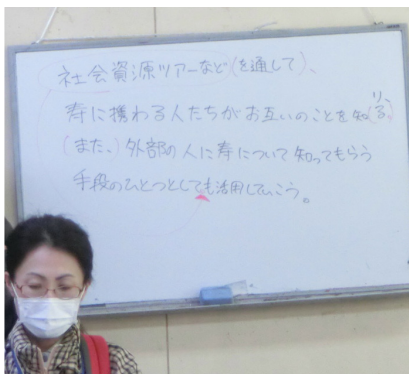 社会資源ツアーなど(を通して)、
寿に携わる人たちがお互いのことを知(る、)り、
(また、)外部の人に寿について知ってもらう
手段のひとつとしても活用していこう。